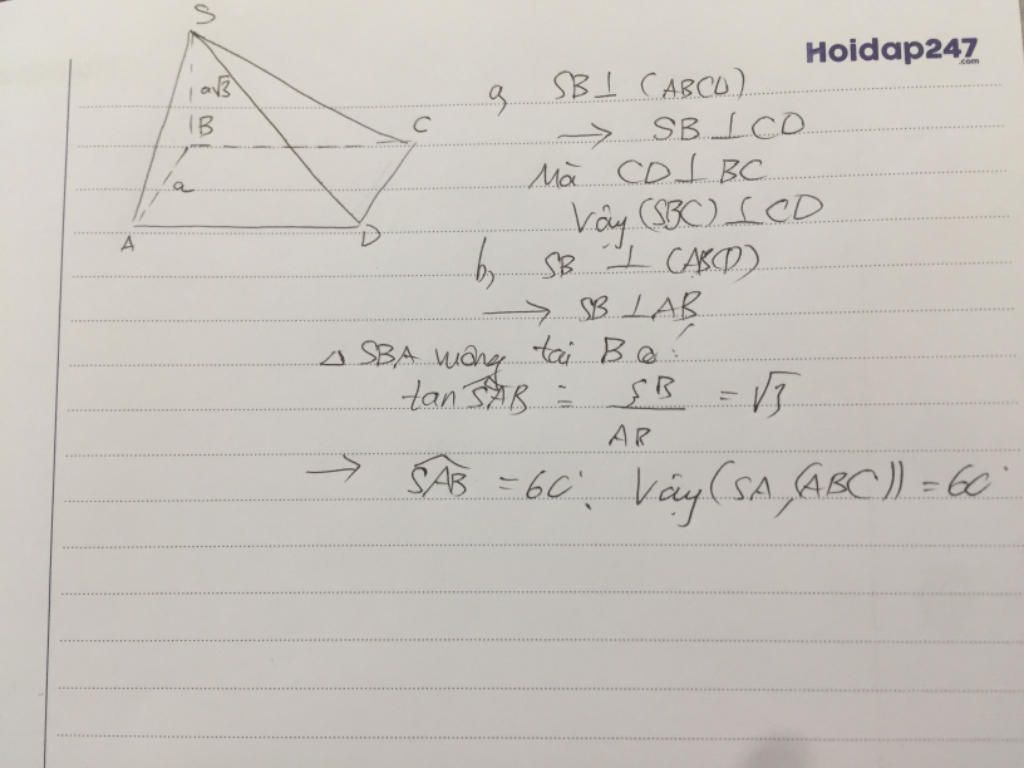 S
Hoidap247
.com
a√3
a, SB ⊥ (ABCD)
B
C
→ SB ⊥ CD
Mà CD ⊥ BC
a
Vậy (SBC) ⊥ CD
A
D
b, SB ⊥ (ABCD)
→ SB ⊥ AB
△ SBA vuông tại B
tan SAB = SB/AB = √3
→ SAB = 60°. Vậy (SA, (ABC)) = 60°